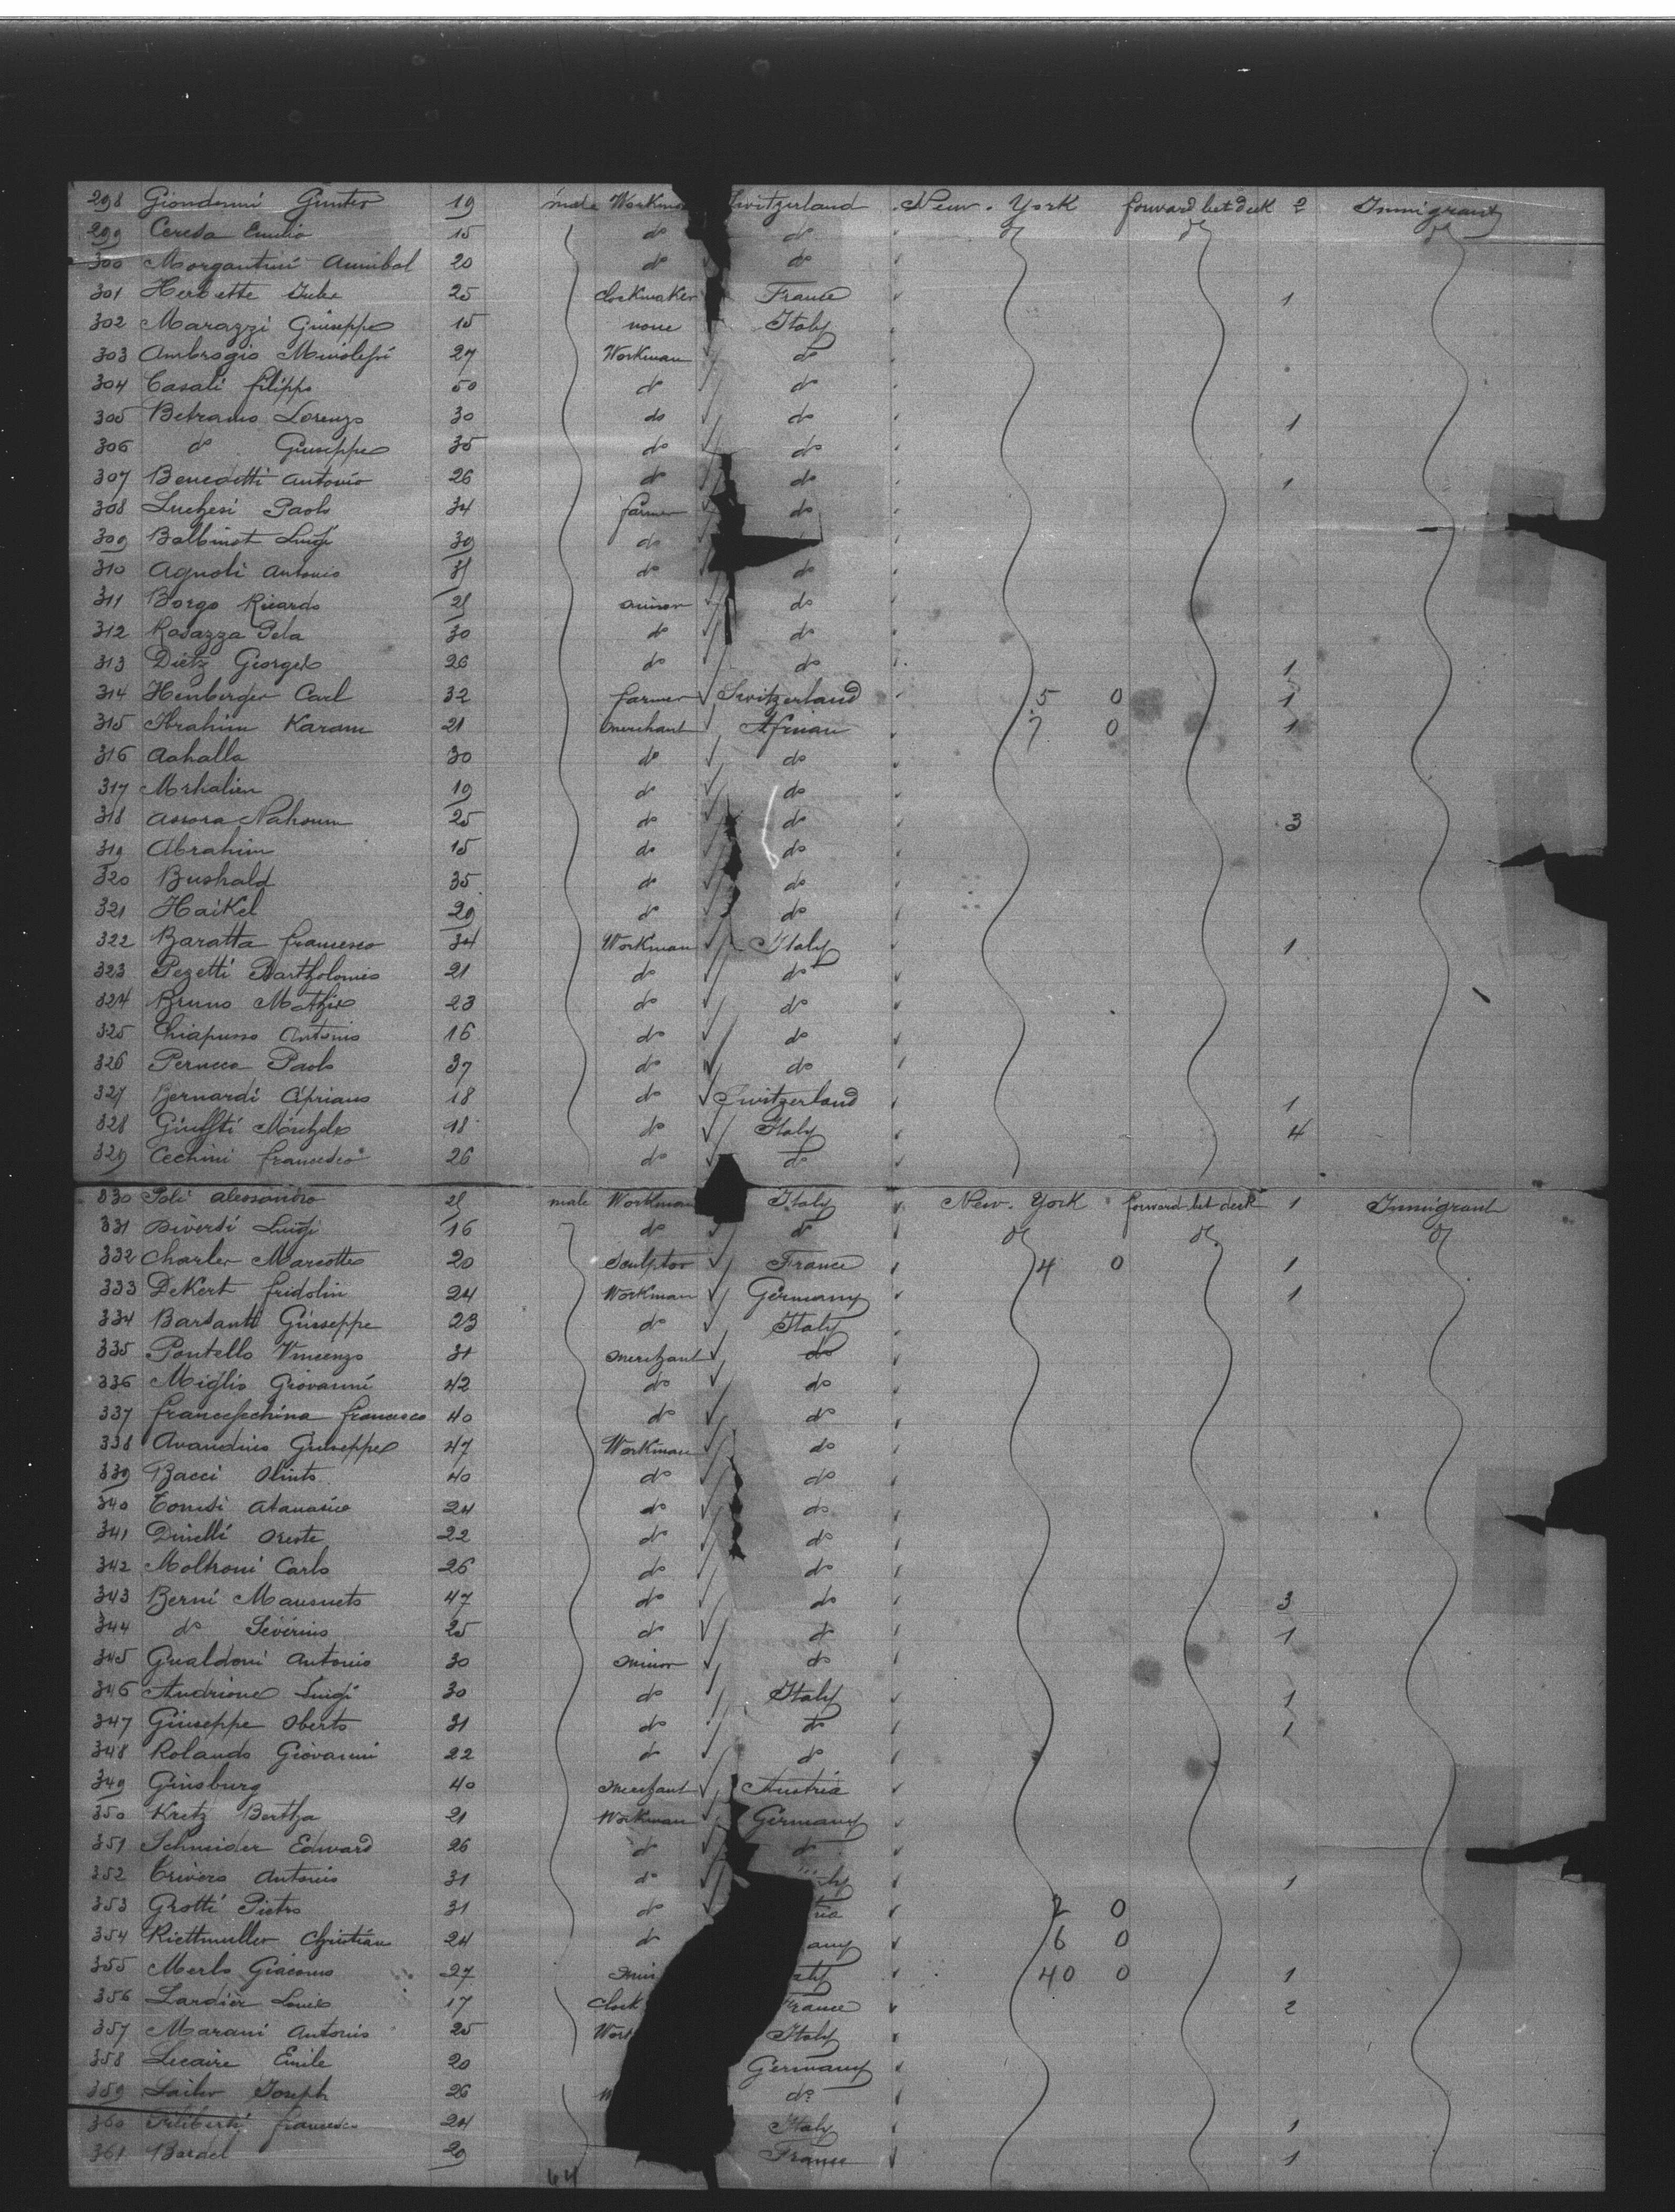 298 Gionderini Gunter 19 male Workman Switzerland New. York forward bet deck 2 Immigrant
299 Ceresa Emilio 15 do do do do do
300 Morgantini Annibal 20 do do
301 Herbette Jules 25 Clockmaker France 1
302 Marazzi Giuseppe 15 none Italy
303 Ambrogio 27 Workman do
304 Casali filippo 50 do do
305 Betramo Lorenzo 30 do do 1
306 do Giuseppe 35 do do
307 Benedetti Antonio 26 do do 1
308 Luchesi Paolo 34 farmer do
309 Balbinot Luigi 39 do
310 Agnoli Antonio 31 do do
311 Borgo Ricardo 28 minor do
312 Rosazza Pela 30 do do
313 Dietz Georges 26 do do 1
314 Henberger Carl 32 farmer Switzerland 5 0 1
315 Ibrahim Karam 21 merchant 7 0 1
316 Aahalla 30 do do
317 Mrhalien 19 do do
318 Assora Nahoum 25 do do 3
319 Abrahim 15 do do
320 Bushald 35 do do
321 Haikel 29 do do
322 Baratta francesco 34 Workman Italy 1
323 Pezetti Bartholomeo 21 do do
324 Bruno Mathieu 23 do do
325 Chiapusso Antonio 16 do do
326 Perucca Paolo 37 do do
327 Bernardi Cipriano 18 do Switzerland 1
328 Giuffti Michele 18 do Italy 4
329 Cechini francesco 26 do do
330 Poli alessandro 28 male Workman Italy New. York forward bet deck 1 Immigrant
331 Diversi Luigi 16 do do do do do
332 Charler Marcotte 20 Sculptor France 4 0 1
333 DeKert fridolin 24 Workman Germany 1
334 Barsanti Giuseppe 23 do Italy
335 Pontello Vincenzo 31 merchant do
336 Miglio Giovanni 42 do do
337 francefschina francesco 40 do do
338 Avandino Giuseppe 47 Workman do
339 Bacci Olinto 40 do do
340 Tomsi Atanasio 24 do do
341 Dinelli Oreste 22 do do
342 Moltroni Carlo 26 do do
343 Berni Mansueto 47 do do 3
344 do Séverino 25 do do 1
345 Gualdoni Antonio 30 minor do
346 Andrione Luigi 30 do Italy 1
347 Giuseppe Oberto 31 do do 1
348 Rolando Giovanni 22 do do
349 Ginsburg 40 merchant Austria
350 Kretz Bertha 21 Workman Germany
351 Schneider Edward 26 do do
352 Trivero Antonio 31 do 1
353 Grotti Pietro 31 do 2 0
354 Riettmuller Christian 24 do 6 0
355 Merlo Giacomo 27 40 0 1
356 Lardier Louis 17 Clock France 2
357 Marani Antonio 25 Work Italy
358 Lecaire Emile 20 Germany
359 Lailer Joseph 26 do
360 Filiberti francesco 24 Italy 1
361 Bardel 29 France 1
64